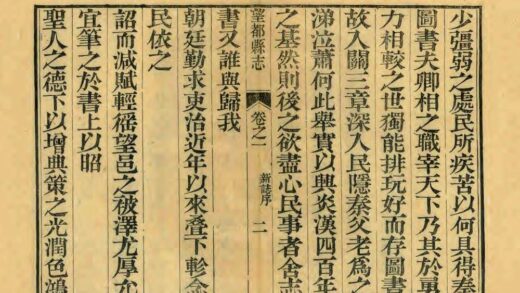 少彊弱之處民所疾苦以何具得秦
圖書夫卿相之職宰天下乃其於
力相較之世獨能排玩好而存圖書
故入關三章深入民隱秦父老爲之
涕泣蕭何此舉實以興炎漢四百年
之基然則後之欲盡心民事者舍志
書又誰與歸我
望都縣志 卷之一 新誌序 二
朝廷勤求吏治近年以來叠下軫念
民依之
詔而減賦輕徭望邑之被澤尤厚允
宜筆之於書上以昭
聖人之德下以增典策之光潤色鴻